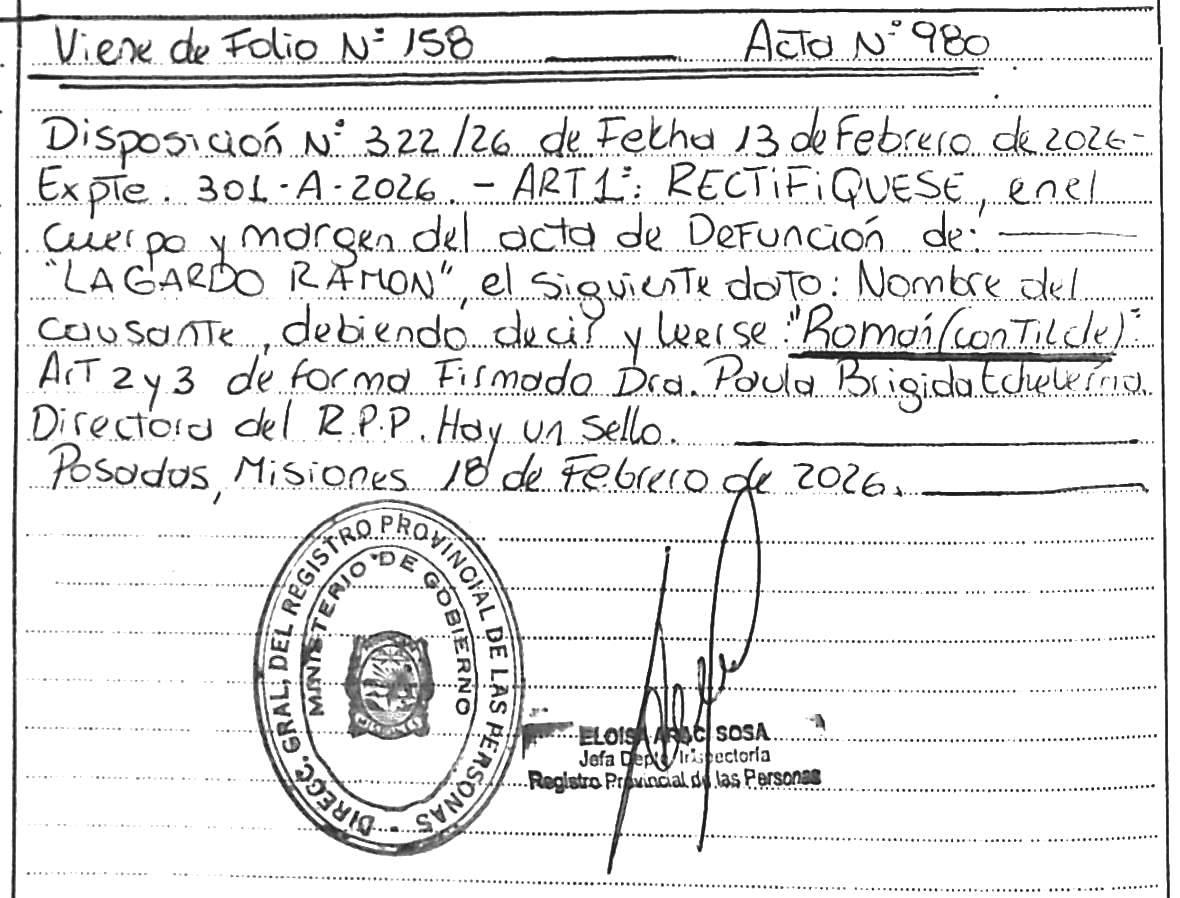 Viene de Folio Nº 158 Acta Nº 980
Disposición Nº 322/26 de Fekha 13 de Febrero de 2026-
Expte. 301-A-2026.- ART 1º: RECTIFIQUESE, en el
cuerpo y margen del acta de Defunción de:
"LAGARDO RAMON", el siguiente dato: Nombre del
causante, debiendo decir y leerse: "Román (con Tilde)".
Art 2 y 3 de forma Firmado Dra. Paula Brigida Echeverria.
Directora del R.P.P. Hay un sello.
Posadas, Misiones 18 de Febrero de 2026.
DIRECC. GRAL. DEL REGISTRO PROVINCIAL DE LAS PERSONAS -
MINISTERIO DE GOBIERNO
MISIONES
ELOISA ARAC SOSA
Jefa Depto Inspectoría
Registro Provincial de las Personas